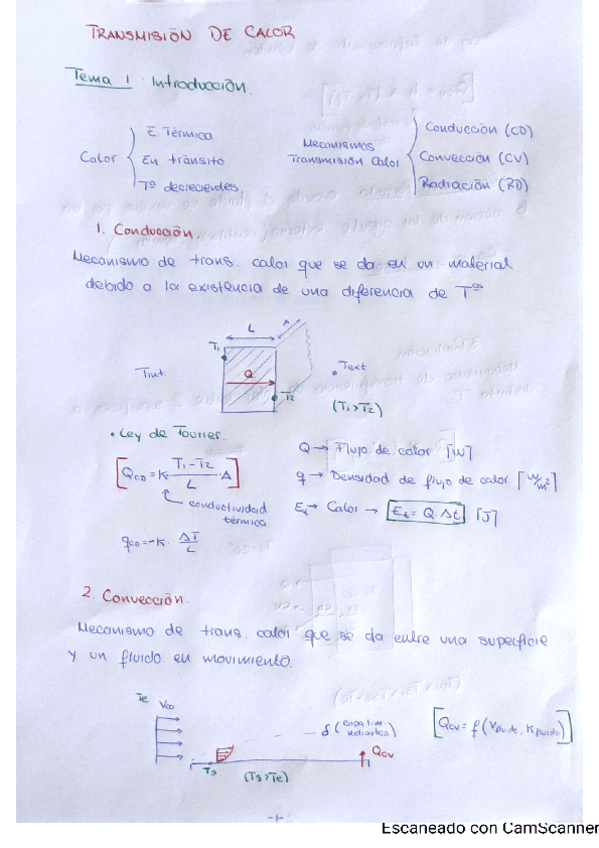 TRANSMISIÓN DE CALOR
Tema 1 Introducción.
Calor { E Térmica
En tránsito
Tª decrecientes
Mecanismos Transmisión Calor { Conducción (CD)
Convección (CV)
Radiación (RD)
1. Conducción
Mecanismo de trans. calor que se da en un material
debido a la existencia de una diferencia de Tªs
L A
T1
Tint. Q Text
T2
(T1>T2)
• Ley de Fourier.
[QCD = K · T1-T2 / L · A]
conductividad
térmica
qCD = -K · ΔT / L
Q → Flujo de calor [W]
q → Densidad de flujo de calor [W/m²]
Et → Calor → Et = Q · Δt [J]
2. Convección.
Mecanismo de trans. calor que se da entre una superficie
y un fluido en movimiento.
Te V∞
δ (capa lim. hidráulica)
[QCV = f(Vfluido, Kfluido)]
QCV
Ts (Ts>Te)
-1-
Escaneado con CamScanner